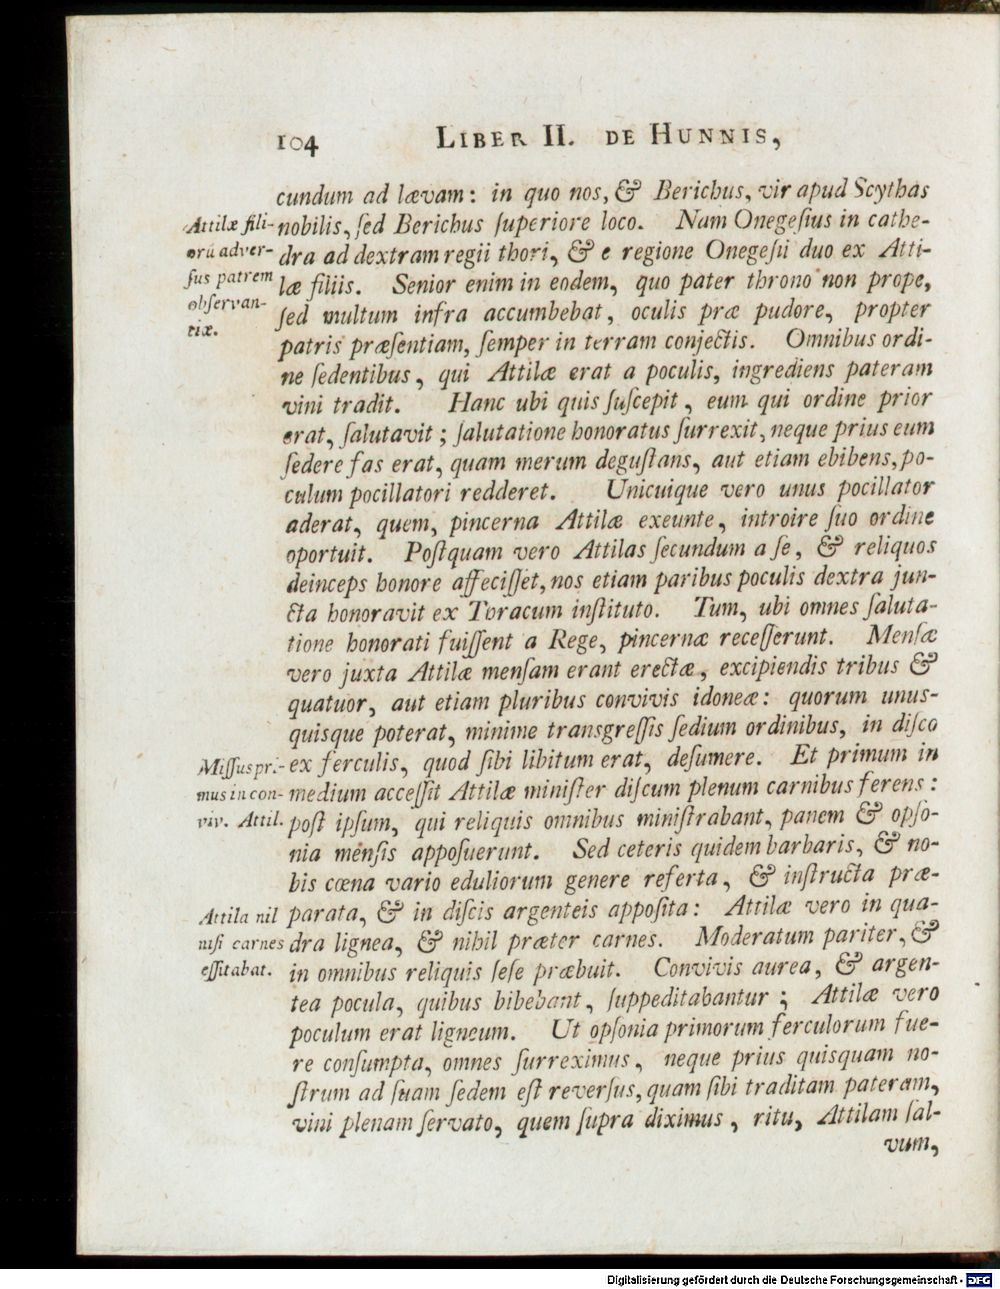 104 LIBER II. DE HUNNIS,
cundum ad lævam: in quo nos, & Berichus, vir apud Scythas
nobilis, ſed Berichus ſuperiore loco. Nam Onegeſius in cathe-
dra ad dextram regii thori, & e regione Onegeſii duo ex Atti-
læ filiis. Senior enim in eodem, quo pater throno non prope,
ſed multum infra accumbebat, oculis præ pudore, propter
patris præſentiam, ſemper in terram conjectis. Omnibus ordi-
ne ſedentibus, qui Attilæ erat a poculis, ingrediens pateram
vini tradit. Hanc ubi quis ſuſcepit, eum qui ordine prior
erat, ſalutavit; ſalutatione honoratus ſurrexit, neque prius eum
ſedere fas erat, quam merum deguſtans, aut etiam ebibens, po-
culum pocillatori redderet. Unicuique vero unus pocillator
aderat, quem, pincerna Attilæ exeunte, introire ſuo ordine
oportuit. Poſtquam vero Attilas ſecundum a ſe, & reliquos
deinceps honore affeciſſet, nos etiam paribus poculis dextra jun-
cta honoravit ex Toracum inſtituto. Tum, ubi omnes ſaluta-
tione honorati fuiſſent a Rege, pincernæ receſſerunt. Menſæ
vero juxta Attilæ menſam erant erectæ, excipiendis tribus &
quatuor, aut etiam pluribus convivis idoneæ: quorum unus-
quisque poterat, minime transgreſſis ſedium ordinibus, in diſco
ex ferculis, quod ſibi libitum erat, deſumere. Et primum in
medium acceſſit Attilæ miniſter diſcum plenum carnibus ferens:
poſt ipſum, qui reliquis omnibus miniſtrabant, panem & opſo-
nia menſis appoſuerunt. Sed ceteris quidem barbaris, & no-
bis cœna vario eduliorum genere referta, & inſtructa præ-
parata, & in diſcis argenteis appoſita: Attilæ vero in qua-
dra lignea, & nihil præter carnes. Moderatum pariter, &
in omnibus reliquis ſeſe præbuit. Convivis aurea, & argen-
tea pocula, quibus bibebant, ſuppeditabantur; Attilæ vero
poculum erat ligneum. Ut opſonia primorum ferculorum fue-
re conſumpta, omnes ſurreximus, neque prius quisquam no-
ſtrum ad ſuam ſedem eſt reverſus, quam ſibi traditam pateram,
vini plenam ſervato, quem ſupra diximus, ritu, Attilam ſal-
vum,
Attilæ fili-
orū adver-
ſus patrem
obſervan-
tiæ.
Miſſus pri-
mus in con-
viv. Attil.
Attila nil
niſi carnes
eſſitabat.
Digitalisierung gefördert durch die Deutsche Forschungsgemeinschaft - DFG